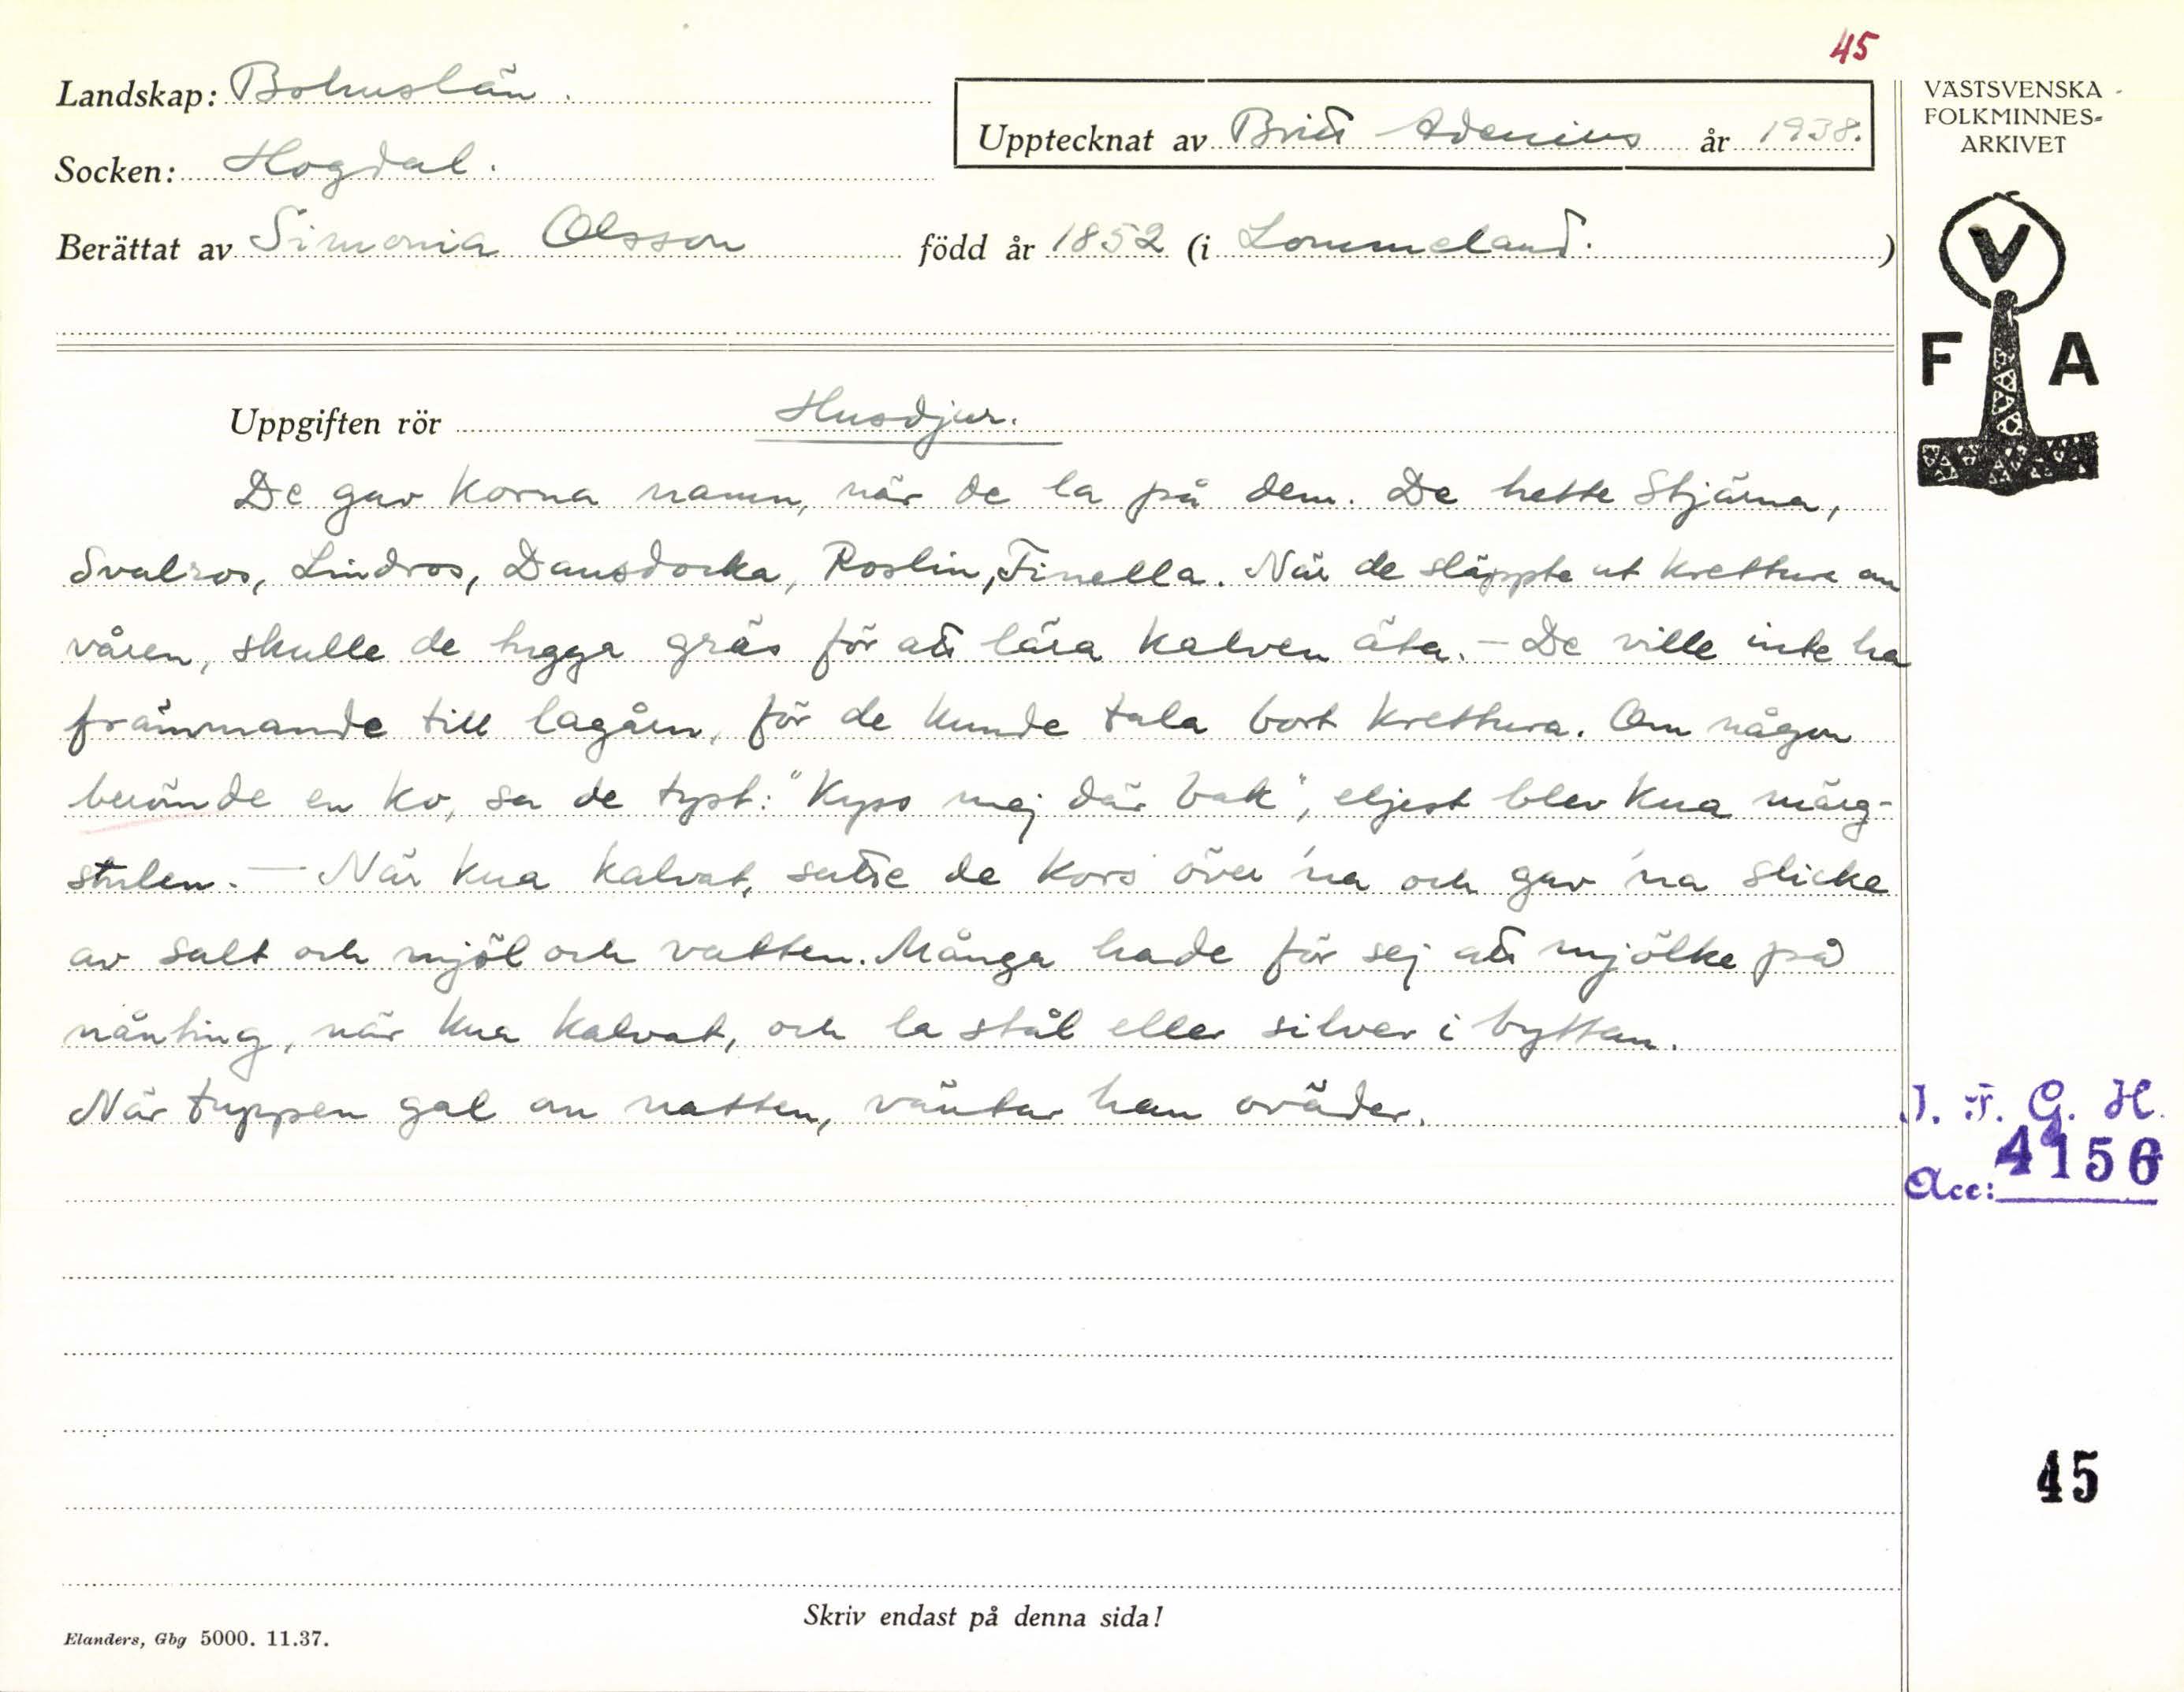 45
Landskap: Bohuslän.
Upptecknat av Britt Adenius år 1938.
VÄSTSVENSKA
FOLKMINNES-
ARKIVET
Socken: Hogdal.
Berättat av Simonia Olsson född år 1852 (i Lommeland.)
V
F A
Uppgiften rör Husdjur.
De gav korna namn, när de la på dem. De hette Stjärna,
Svalros, Lindros, Dansdocka, Roslin, Finella. När de släppte ut kretture om
våren, skulle de hugga gräs för att lära kalven äta. - De ville inte ha
främmande till lagårn, för de kunde tala bort krettura. Om någon
berömde en ko, sa de tyst: "Kyss mej där bak", eljest blev kua märg-
stulen. - När kua kalvat, satte de kors över 'na och gav 'na slicke
av salt och mjöl och vatten. Många hade för sej att mjölke på
nånting, när kua kalvat, och la stål eller silver i byttan.
När tuppen gal om natten, väntar han oväder.
I. F. G. H.
Acc: 4156
45
Skriv endast på denna sida!
Elanders, Gbg 5000. 11.37.